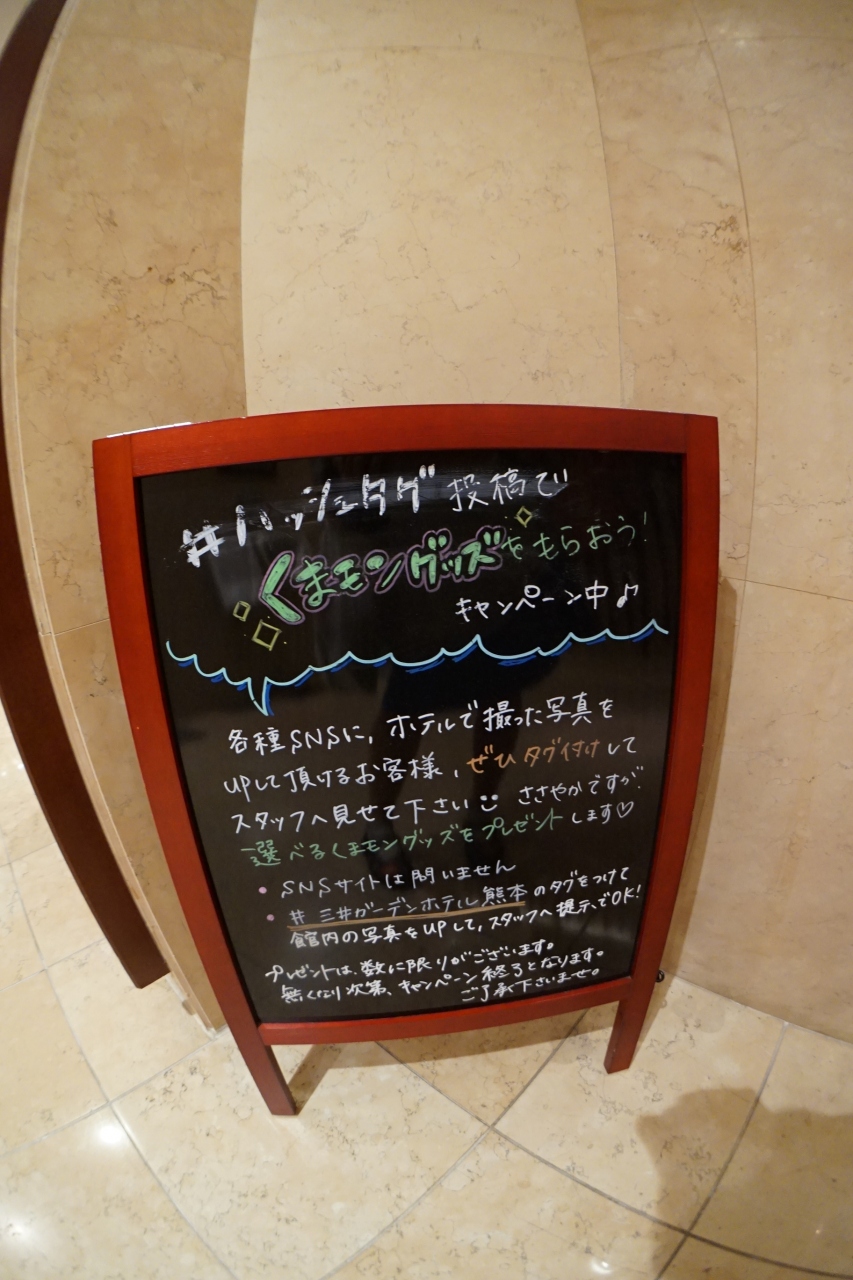 #ハッシュタグ 投稿で
くまモングッズをもらおう!
キャンペーン中♪
各種SNSに,ホテルで撮った写真を
UPして頂けるお客様,ぜひタグ付けして
スタッフへ見せて下さい ささやかですが
選べるくまモングッズをプレゼントします♡
• SNSサイトは問いません
• #三井ガーデンホテル熊本のタグをつけて
館内の写真をUPして,スタッフへ提示でOK!
プレゼントは、数に限りがございます。
無くなり次第、キャンペーン終了となります。
ご了承下さいませ。